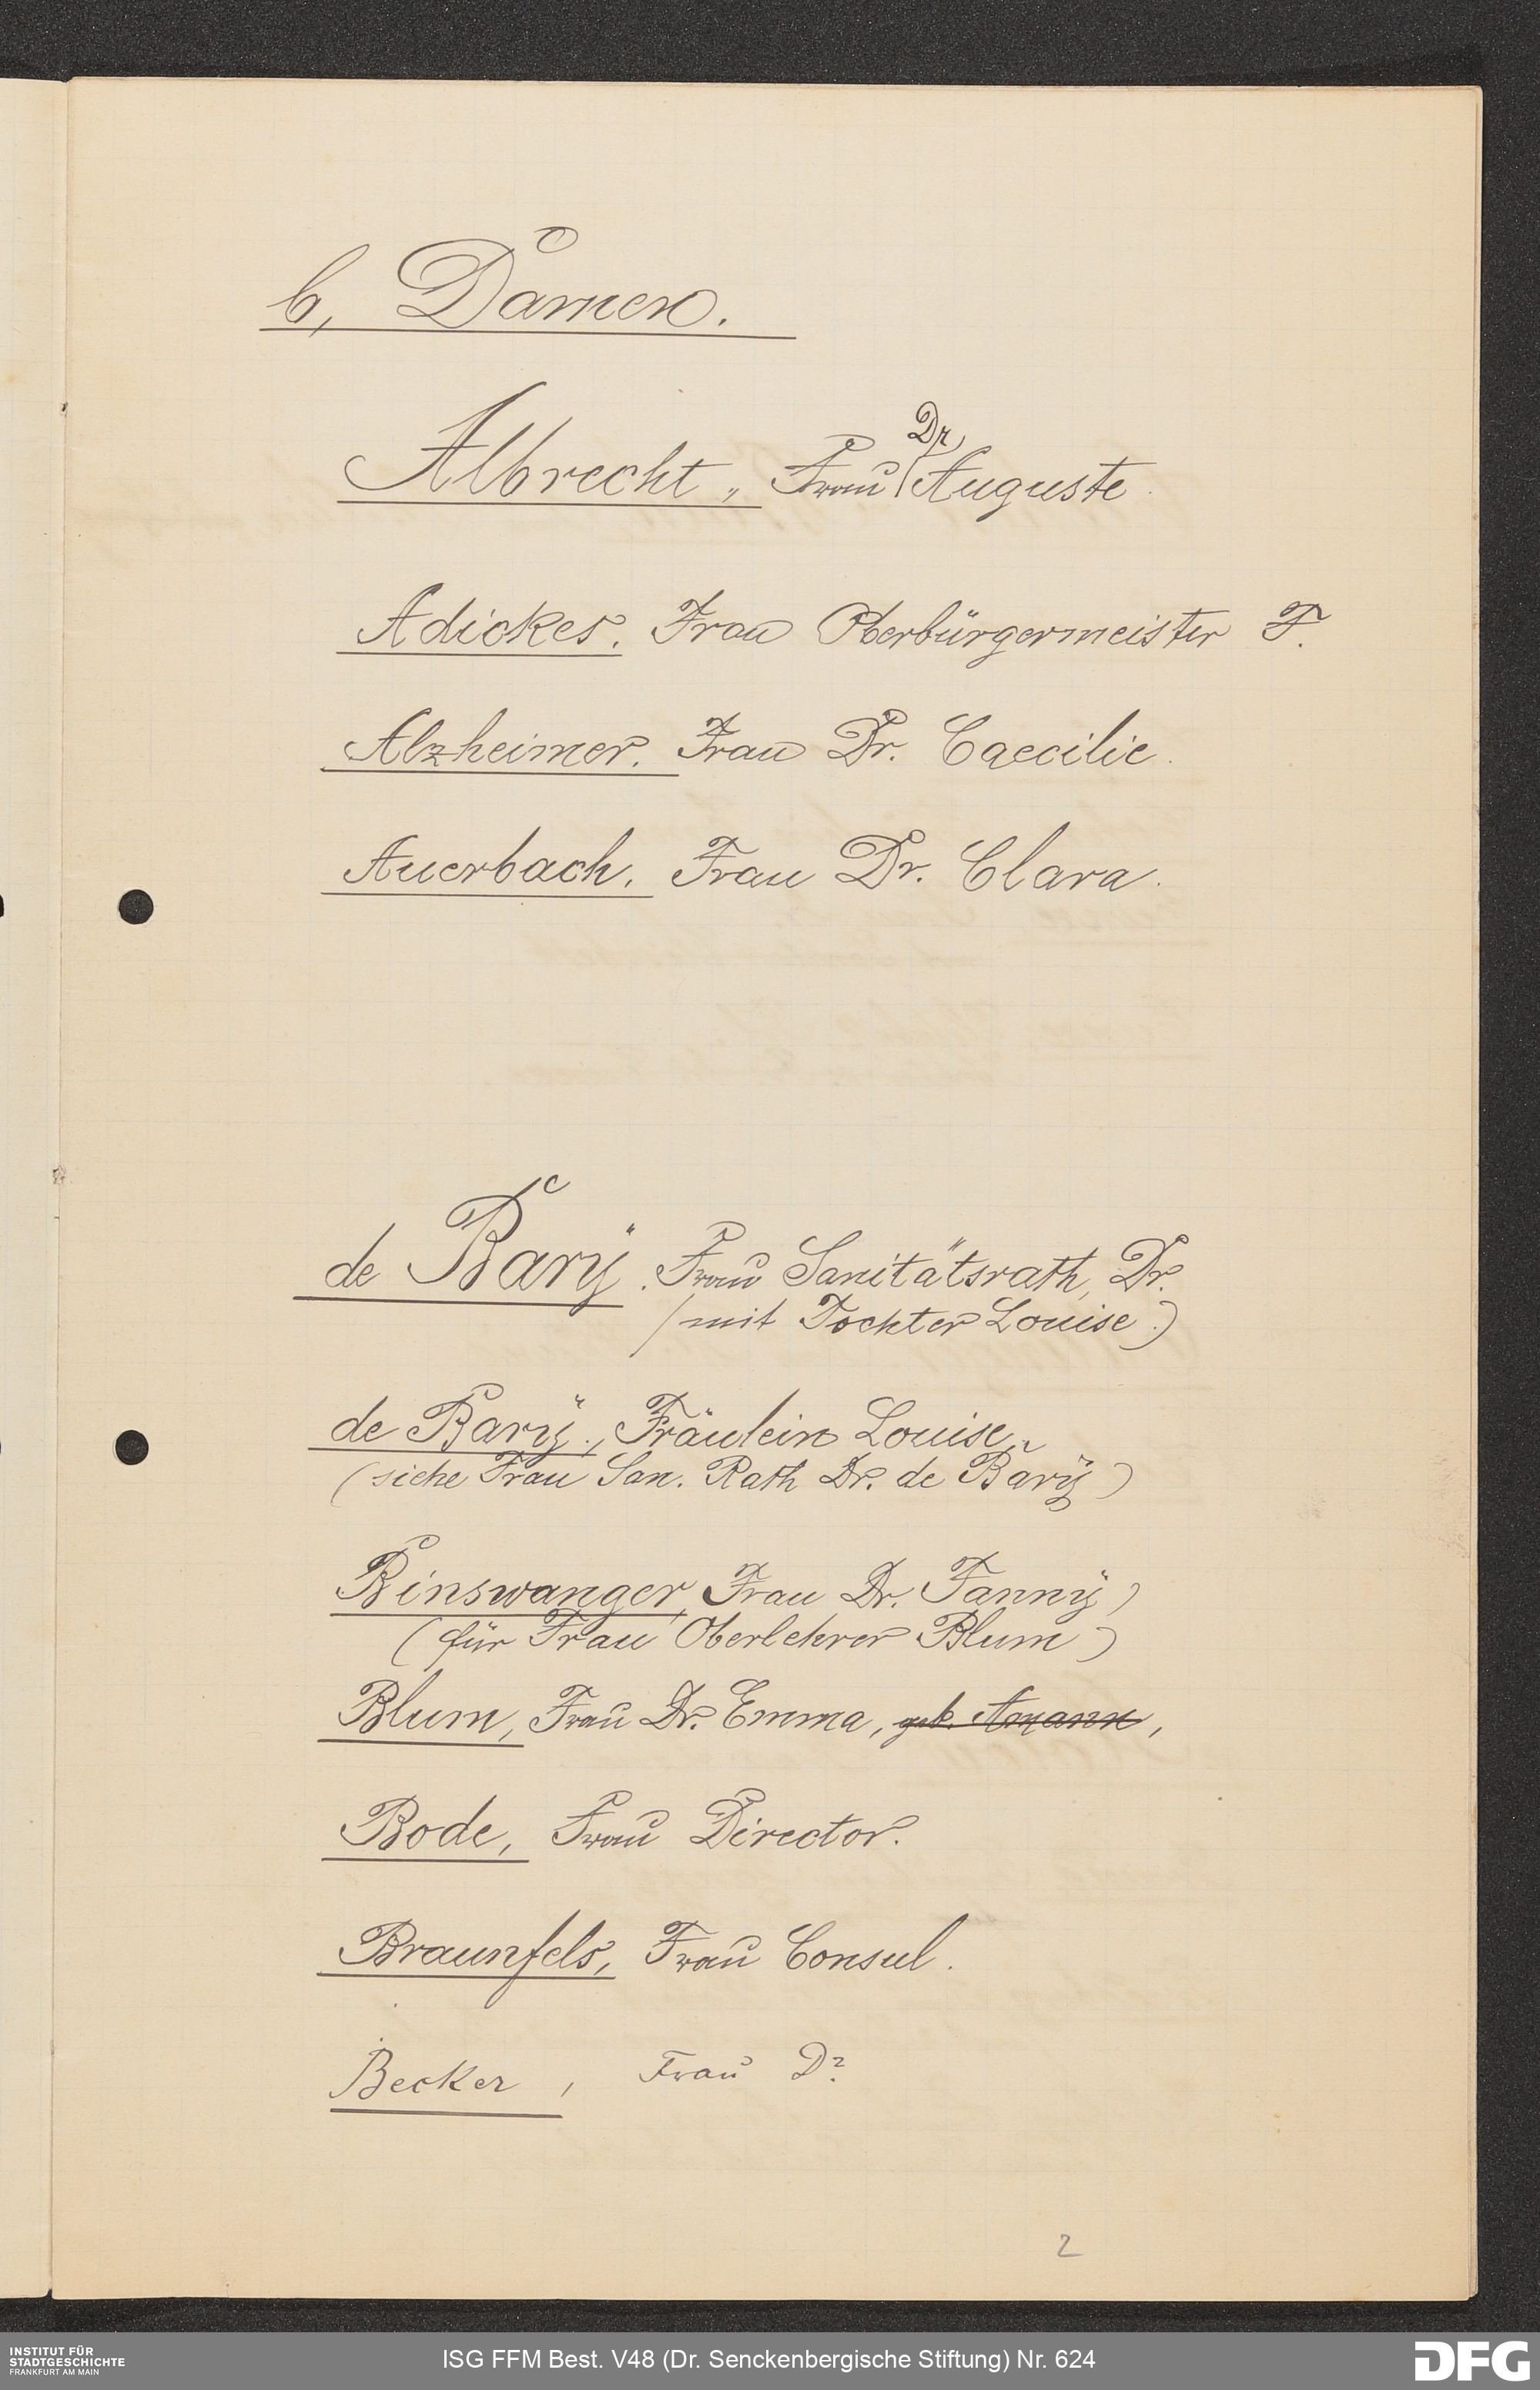 b, Damen.
Albrecht, Frau Dr. Auguste.
Adickes. Frau Oberbürgermeister F.
Alzheimer. Frau Dr. Caecilie.
Auerbach. Frau Dr. Clara.
de Barÿ. Frau Sanitätsrath, Dr.
(mit Tochter Louise.)
de Barÿ., Fräulein Louise,
(siehe Frau San. Rath Dr. de Barÿ)
Binswanger, Frau Dr. Fannÿ,
(für Frau Oberlehrer Blum)
Blum, Frau Dr. Emma, geb. Amann,
Bode, Frau Director.
Braunfels, Frau Consul.
Becker, Frau Dr.
2
INSTITUT FÜR
STADTGESCHICHTE
FRANKFURT AM MAIN
ISG FFM Best. V48 (Dr. Senckenbergische Stiftung) Nr. 624
DFG